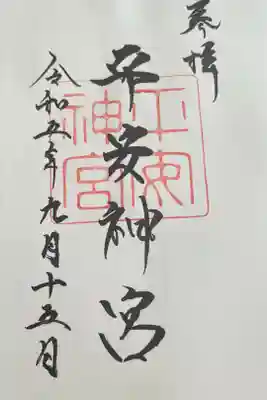 奉拝
平安神宮
平安神宮
令和五年九月十五月